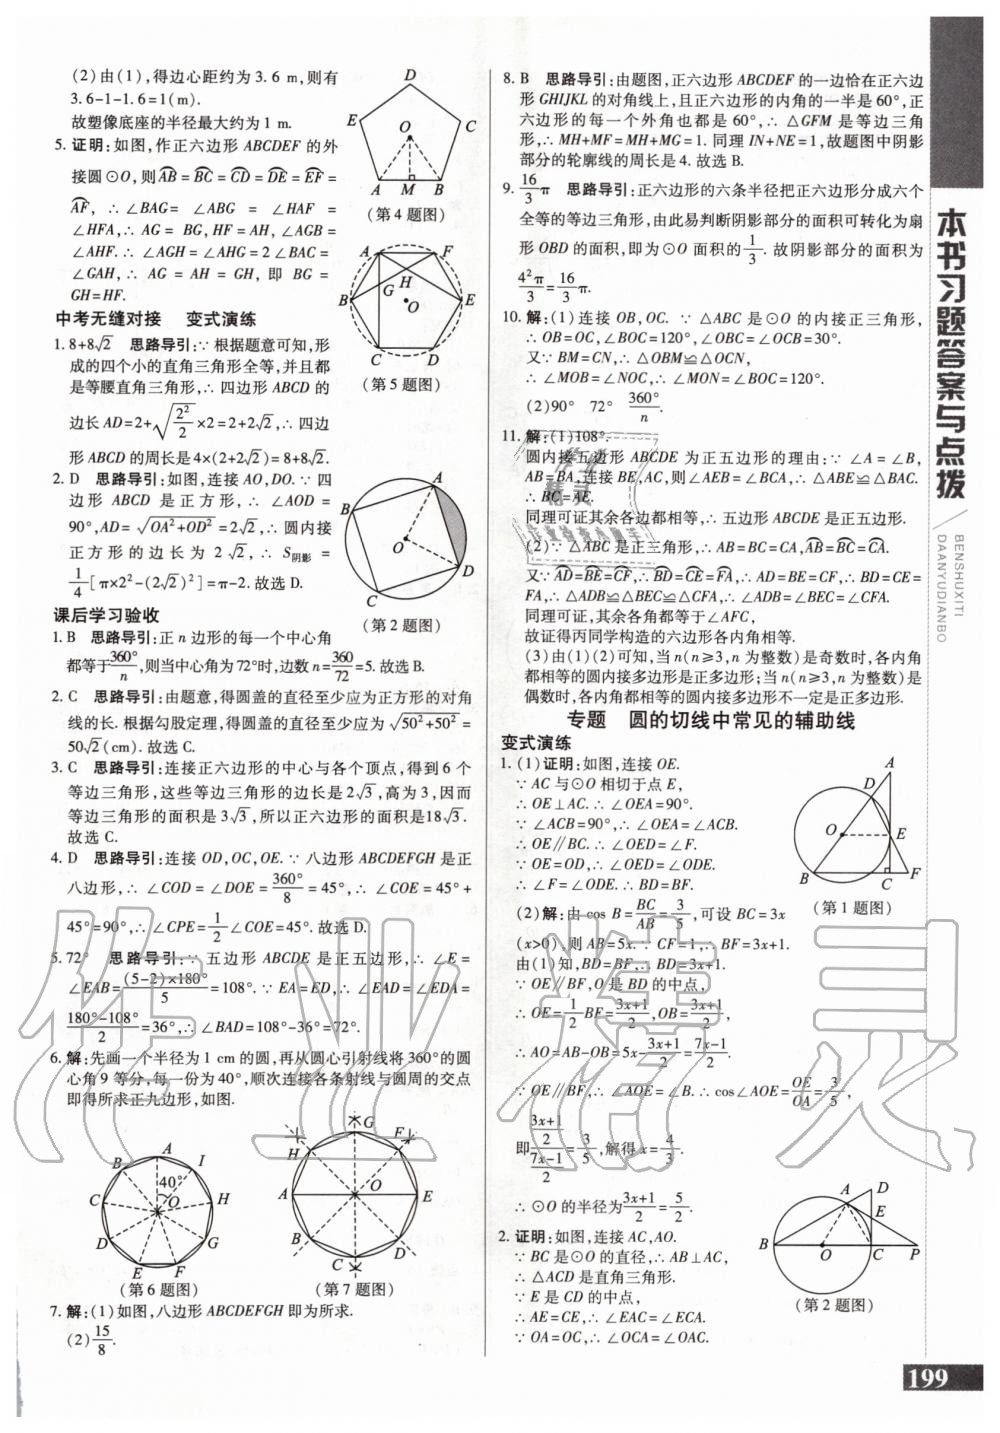 (2)由(1),得边心距约为3.6 m,则有
3.6-1-1.6=1(m).
故塑像底座的半径最大约为1 m.
5. 证明:如图,作正六边形ABCDEF的外
接圆⊙O,则AB⌢=BC⌢=CD⌢=DE⌢=EF⌢=
AF⌢, ∴∠BAG=∠ABG=∠HAF=
∠HFA,∴AG=BG,HF=AH,∠AGB=
∠AHF.∴∠AGH=∠AHG=2∠BAC=
∠GAH,∴AG=AH=GH,即BG=
GH=HF.
D
E
C
O
A M B
(第4题图)
A F
G H
B O E
C D
(第5题图)
中考无缝对接 变式演练
1. 8+8√2 思路导引:∵根据题意可知,形
成的四个小的直角三角形全等,并且都
是等腰直角三角形,∴四边形ABCD的
边长AD=2+√(2²/2)×2=2+2√2,∴四边
形ABCD的周长是4×(2+2√2)=8+8√2.
2. D 思路导引:如图,连接AO,DO.∵四
边形ABCD是正方形,∴∠AOD=
90°,AD=√(OA²+OD²)=2√2,∴圆内接
正方形的边长为2√2,∴S阴影=
1/4[π×2²-(2√2)²]=π-2.故选D.
A
B
O
D
C
(第2题图)
课后学习验收
1. B 思路导引:正n边形的每一个中心角
都等于360°/n,则当中心角为72°时,边数n=360/72=5.故选B.
2. C 思路导引:由题意,得圆盖的直径至少应为正方形的对角
线的长.根据勾股定理,得圆盖的直径至少应为√(50²+50²)=
50√2(cm).故选C.
3. C 思路导引:连接正六边形的中心与各个顶点,得到6个
等边三角形,这些等边三角形的边长是2√3,高为3,因而
等边三角形的面积是3√3,所以正六边形的面积是18√3.
故选C.
4. D 思路导引:连接OD,OC,OE.∵八边形ABCDEFGH是正
八边形,∴∠COD=∠DOE=360°/8=45°,∴∠COE=45°+
45°=90°,∴∠CPE=1/2∠COE=45°.故选D.
5. 72° 思路导引:∵五边形ABCDE是正五边形,∴∠E=
∠EAB=(5-2)×180°/5=108°.∵EA=ED,∴∠EAD=∠EDA=
(180°-108°)/2=36°,∴∠BAD=108°-36°=72°.
6. 解:先画一个半径为1 cm的圆,再从圆心引射线将360°的圆
心角9等分,每一份为40°,顺次连接各条射线与圆周的交点
即得所求正九边形,如图.
A
B I
40°
C O H
D G
E F
(第6题图)
G
H F
A O E
B D
C
(第7题图)
7. 解:(1)如图,八边形ABCDEFGH即为所求.
(2)15/8.
8. B 思路导引:由题图,正六边形ABCDEF的一边恰在正六边
形GHIJKL的对角线上,且正六边形的内角的一半是60°,正
六边形的每一个外角也都是60°,∴△GFM是等边三角
形,∴MH+MF=MH+MG=1.同理IN+NE=1,故题图中阴影
部分的轮廓线的周长是4.故选B.
9. 16/3π 思路导引:正六边形的六条半径把正六边形分成六个
全等的等边三角形,由此易判断阴影部分的面积可转化为扇
形OBD的面积,即为⊙O面积的1/3.故阴影部分的面积为
4²π/3=16/3π.
10. 解:(1)连接OB,OC.∵△ABC是⊙O的内接正三角形,
∴OB=OC,∠BOC=120°,∠OBC=∠OCB=30°.
又∵BM=CN,∴△OBM≌△OCN,
∴∠MOB=∠NOC,∴∠MON=∠BOC=120°.
(2)90° 72° 360°/n
11. 解:(1)108°.
圆内接五边形ABCDE为正五边形的理由:∵∠A=∠B,
AB=BA,连接BE,AC,则∠AEB=∠BCA,∴△ABE≌△BAC.
∴BC=AE.
同理可证其余各边都相等,∴五边形ABCDE是正五边形.
(2)∵△ABC是正三角形,∴AB=BC=CA,AB⌢=BC⌢=CA⌢.
又∵AD⌢=BE⌢=CF⌢,∴BD⌢=CE⌢=FA⌢,∴AD=BE=CF,BD=CE=
FA,∴△ADB≌△BEC≌△CFA,∴∠ADB=∠BEC=∠CFA.
同理可证,其余各角都等于∠AFC,
故证得丙同学构造的六边形各内角相等.
(3)由(1)(2)可知,当n(n≥3,n为整数)是奇数时,各内角
都相等的圆内接多边形是正多边形;当n(n≥3,n为整数)是
偶数时,各内角都相等的圆内接多边形不一定是正多边形.
专题 圆的切线中常见的辅助线
变式演练
1. (1)证明:如图,连接OE.
∵AC与⊙O相切于点E,
∴OE⊥AC.∴∠OEA=90°.
∵∠ACB=90°,∴∠OEA=∠ACB.
∴OE∥BC.∴∠OED=∠F.
∵OE=OD,∴∠OED=∠ODE.
∴∠F=∠ODE.∴BD=BF.
(2)解:由cos B=BC/AB=3/5,可设BC=3x
(x>0),则AB=5x.∵CF=1,∴BF=3x+1.
由(1)知,BD=BF,∴BD=3x+1.
∵OE∥BF,O是BD的中点,
∴OE=1/2BF=(3x+1)/2,OB=(3x+1)/2,
∴AO=AB-OB=5x-(3x+1)/2=(7x-1)/2.
∵OE∥BF,∴∠AOE=∠B.∴cos∠AOE=OE/OA=3/5,
即((3x+1)/2)/((7x-1)/2)=3/5,解得x=4/3.
∴⊙O的半径为(3x+1)/2=5/2.
A
D
O E
B C F
(第1题图)
2. 证明:如图,连接AC,AO.
∵BC是⊙O的直径,∴AB⊥AC,
∴△ACD是直角三角形.
∵E是CD的中点,
∴AE=CE,∴∠EAC=∠ECA.
∵OA=OC,∴∠OCA=∠OAC.
A D
E
B O C P
(第2题图)
本书习题答案与点拨
BENSHUXITI
DAANYUDIANBO
199
作业精灵